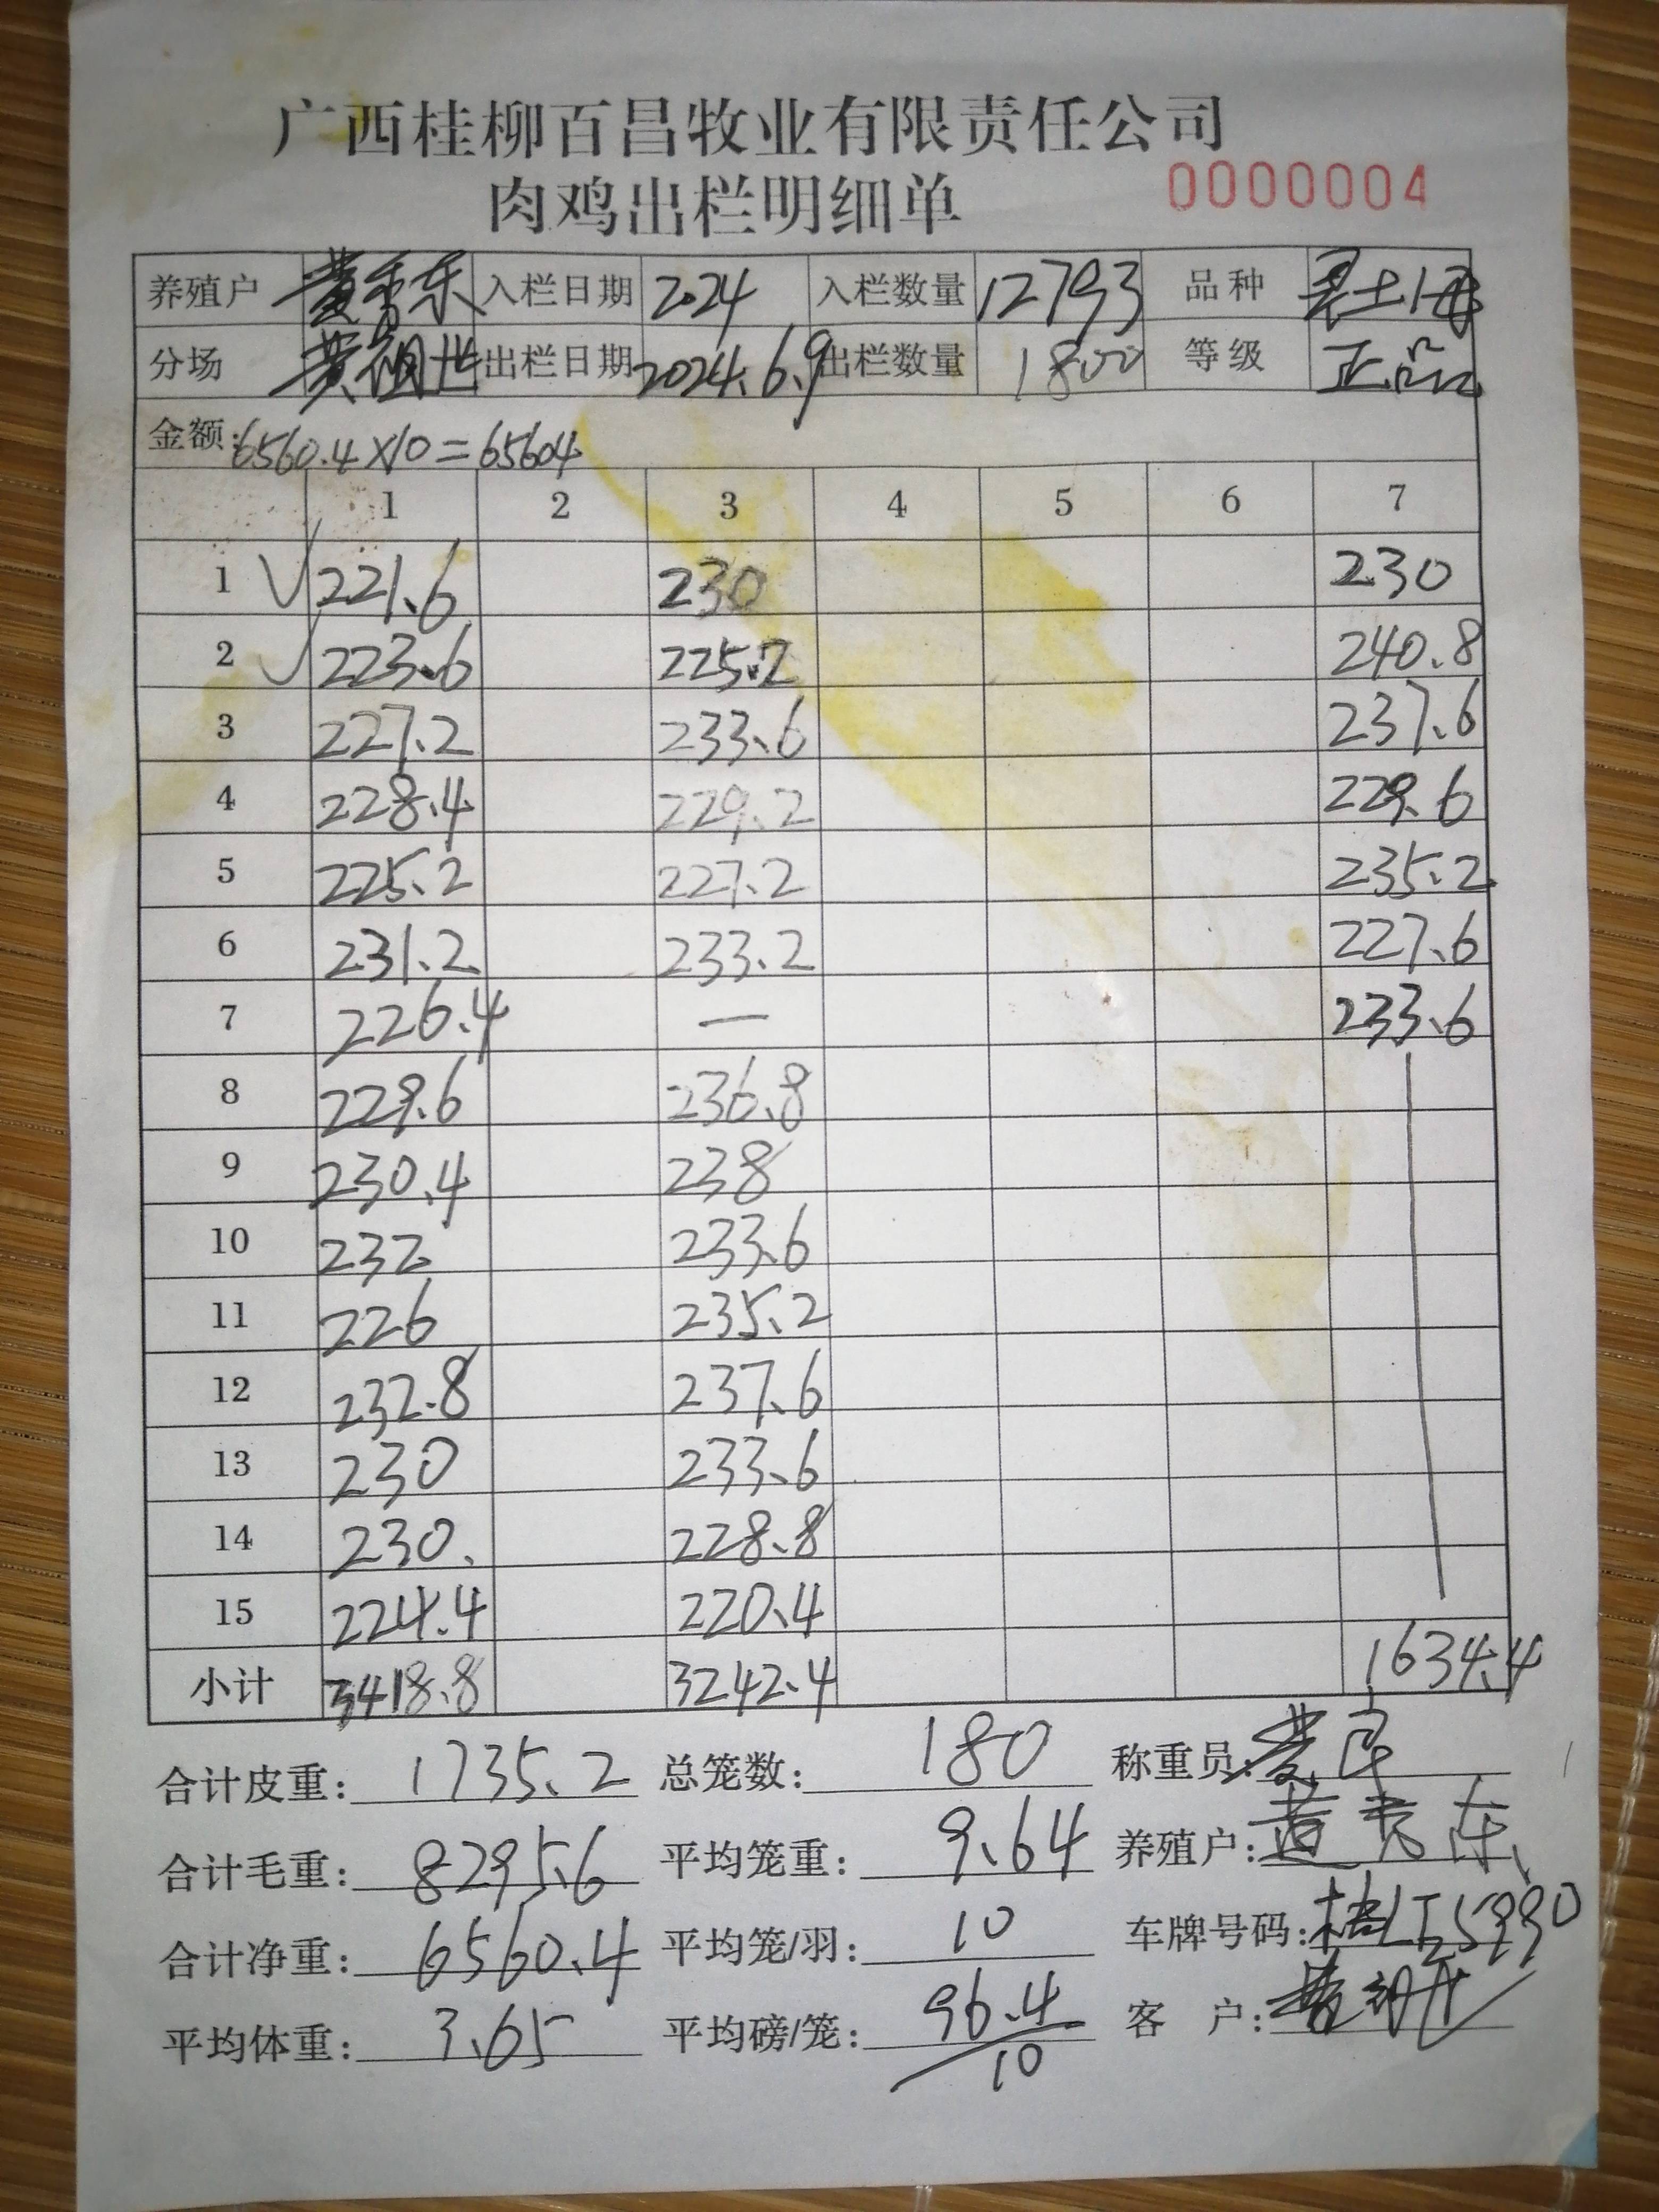 广西桂柳百昌牧业有限责任公司
肉鸡出栏明细单 0000004
养殖户 入栏日期 2024 入栏数量 12793 品种
分场 黄祖世 出栏日期 2024.6.9 出栏数量 1800 等级 正品
金额:6560.4×10=65604
1 2 3 4 5 6 7
1 √ 221.6 230 230
2 √ 223.6 225.2 240.8
3 227.2 233.6 237.6
4 228.4 229.2 229.6
5 225.2 227.2 235.2
6 231.2 233.2 227.6
7 226.4 — 233.6
8 229.6 236.8
9 230.4 238
10 232 233.6
11 226 235.2
12 232.8 237.6
13 230 233.6
14 230. 228.8
15 224.4 220.4
小计 3418.8 3242.4 1634.4
合计皮重: 1735.2 总笼数: 180 称重员:
合计毛重: 8295.6 平均笼重: 9.64 养殖户:
合计净重: 6560.4 平均笼/羽: 10 车牌号码:
平均体重: 3.65 平均磅/笼: 96.4 客 户:
10